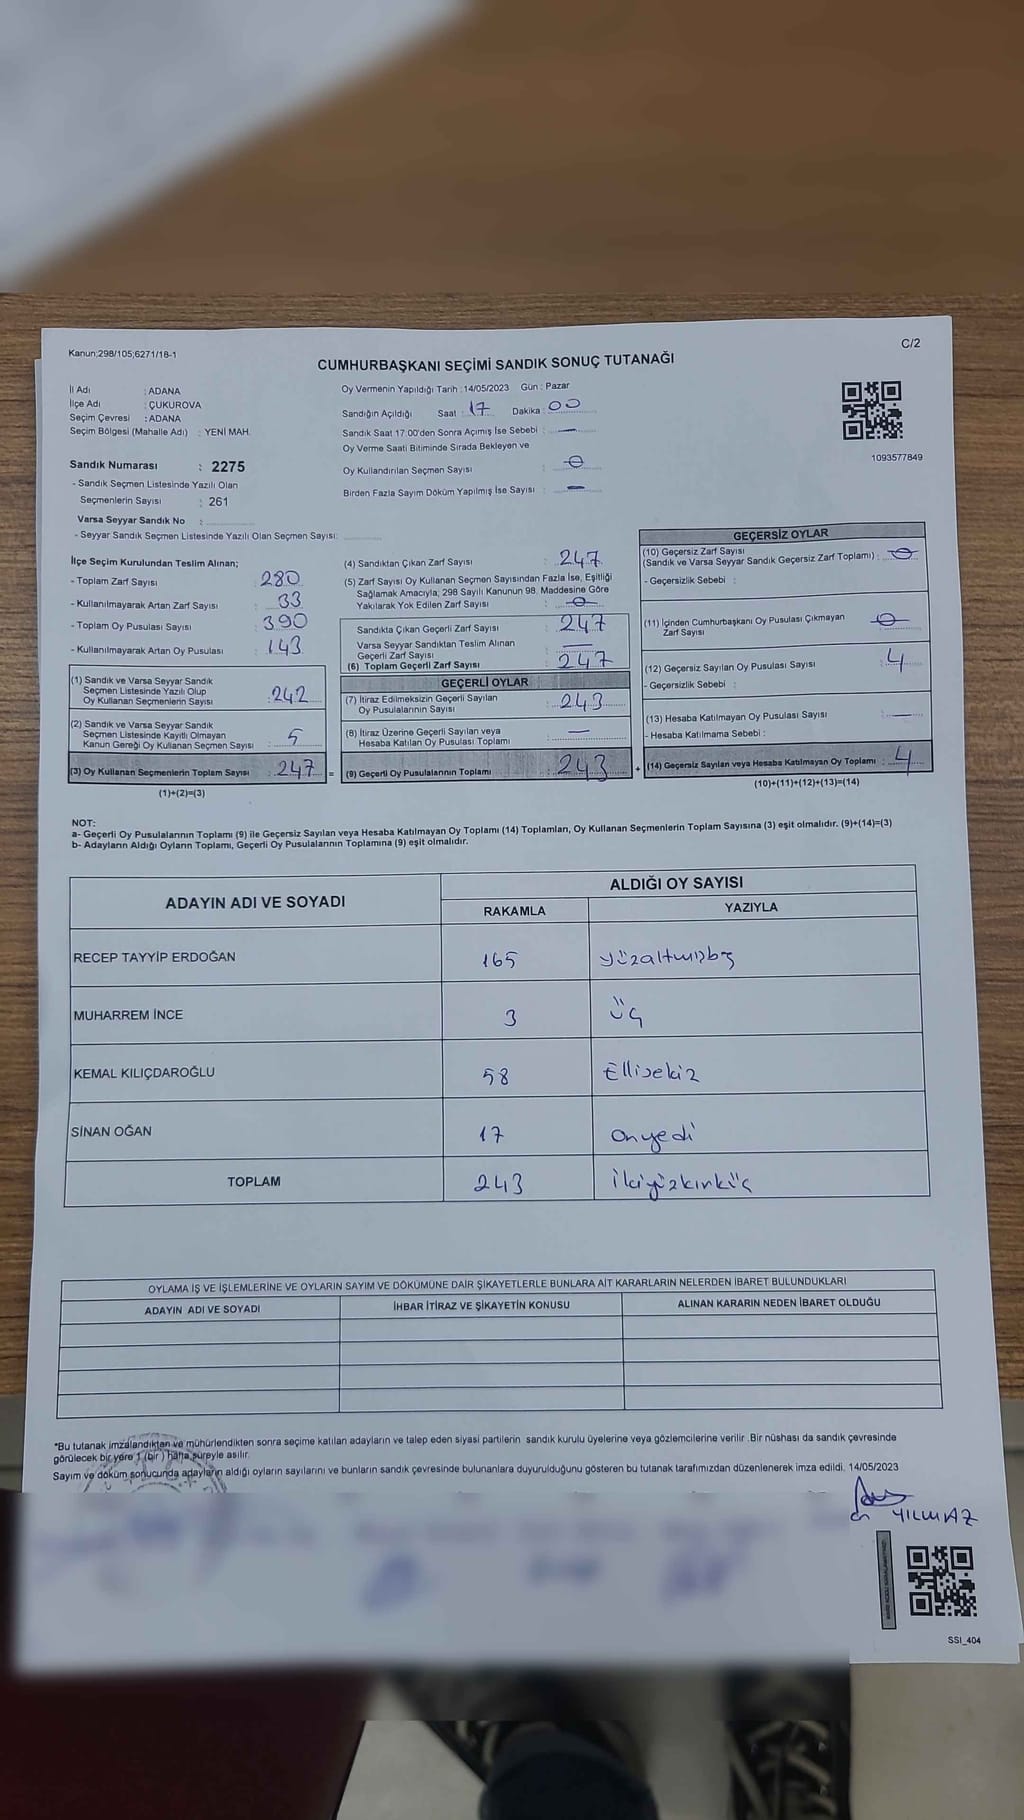 Kanun:298/105;6271/18-1
C/2
CUMHURBAŞKANI SEÇİMİ SANDIK SONUÇ TUTANAĞI
İl Adı : ADANA
İlçe Adı : ÇUKUROVA
Seçim Çevresi : ADANA
Seçim Bölgesi (Mahalle Adı) : YENİ MAH.
Sandık Numarası : 2275
- Sandık Seçmen Listesinde Yazılı Olan
Seçmenlerin Sayısı : 261
Varsa Seyyar Sandık No :
- Seyyar Sandık Seçmen Listesinde Yazılı Olan Seçmen Sayısı:
Oy Vermenin Yapıldığı Tarih :14/05/2023 Gün : Pazar
Sandığın Açıldığı Saat : 17 Dakika : 00
Sandık Saat 17:00'den Sonra Açımış İse Sebebi : —
Oy Verme Saati Bitiminde Sırada Bekleyen ve
Oy Kullandırılan Seçmen Sayısı : 0
Birden Fazla Sayım Döküm Yapılmış İse Sayısı : —
1093577849
İlçe Seçim Kurulundan Teslim Alınan;
- Toplam Zarf Sayısı : 280
- Kullanılmayarak Artan Zarf Sayısı : 33
- Toplam Oy Pusulası Sayısı : 390
- Kullanılmayarak Artan Oy Pusulası : 143
(1) Sandık ve Varsa Seyyar Sandık
Seçmen Listesinde Yazılı Olup
Oy Kullanan Seçmenlerin Sayısı : 242
(2) Sandık ve Varsa Seyyar Sandık
Seçmen Listesinde Kayıtlı Olmayan
Kanun Gereği Oy Kullanan Seçmen Sayısı : 5
(3) Oy Kullanan Seçmenlerin Toplam Sayısı : 247 =
(1)+(2)=(3)
(4) Sandıktan Çıkan Zarf Sayısı : 247
(5) Zarf Sayısı Oy Kullanan Seçmen Sayısından Fazla İse, Eşitliği
Sağlamak Amacıyla; 298 Sayılı Kanunun 98. Maddesine Göre
Yakılarak Yok Edilen Zarf Sayısı : 0
Sandıkta Çıkan Geçerli Zarf Sayısı : 247
Varsa Seyyar Sandıktan Teslim Alınan
Geçerli Zarf Sayısı : —
(6) Toplam Geçerli Zarf Sayısı : 247
GEÇERLİ OYLAR
(7) İtiraz Edilmeksizin Geçerli Sayılan
Oy Pusulalarının Sayısı : 243
(8) İtiraz Üzerine Geçerli Sayılan veya
Hesaba Katılan Oy Pusulası Toplamı : —
(9) Geçerli Oy Pusulalarının Toplamı : 243 +
GEÇERSİZ OYLAR
(10) Geçersiz Zarf Sayısı
(Sandık ve Varsa Seyyar Sandık Geçersiz Zarf Toplamı) : 0
- Geçersizlik Sebebi :
(11) İçinden Cumhurbaşkanı Oy Pusulası Çıkmayan
Zarf Sayısı : 0
(12) Geçersiz Sayılan Oy Pusulası Sayısı : 4
- Geçersizlik Sebebi :
(13) Hesaba Katılmayan Oy Pusulası Sayısı : —
- Hesaba Katılmama Sebebi :
(14) Geçersiz Sayılan veya Hesaba Katılmayan Oy Toplamı : 4
(10)+(11)+(12)+(13)=(14)
NOT:
a- Geçerli Oy Pusulalarının Toplamı (9) ile Geçersiz Sayılan veya Hesaba Katılmayan Oy Toplamı (14) Toplamları, Oy Kullanan Seçmenlerin Toplam Sayısına (3) eşit olmalıdır. (9)+(14)=(3)
b- Adayların Aldığı Oyların Toplamı, Geçerli Oy Pusulalarının Toplamına (9) eşit olmalıdır.
ADAYIN ADI VE SOYADI ALDIĞI OY SAYISI
RAKAMLA YAZIYLA
RECEP TAYYİP ERDOĞAN 165 yüzaltmışbş
MUHARREM İNCE 3 üç
KEMAL KILIÇDAROĞLU 58 Ellisekiz
SİNAN OĞAN 17 onyedi
TOPLAM 243 ikiyüzkırküç
OYLAMA İŞ VE İŞLEMLERİNE VE OYLARIN SAYIM VE DÖKÜMÜNE DAİR ŞİKAYETLERLE BUNLARA AİT KARARLARIN NELERDEN İBARET BULUNDUKLARI
ADAYIN ADI VE SOYADI İHBAR İTİRAZ VE ŞİKAYETİN KONUSU ALINAN KARARIN NEDEN İBARET OLDUĞU
*Bu tutanak imzalandıktan ve mühürlendikten sonra seçime katılan adayların ve talep eden siyasi partilerin sandık kurulu üyelerine veya gözlemcilerine verilir .Bir nüshası da sandık çevresinde
görülecek bir yere 1 (bir ) hafta süreyle asılır.
Sayım ve döküm sonucunda adayların aldığı oyların sayılarını ve bunların sandık çevresinde bulunanlara duyurulduğunu gösteren bu tutanak tarafımızdan düzenlenerek imza edildi. 14/05/2023
YILMAZ
SSI_404